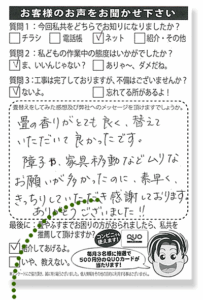 お客様のお声をお聞かせ下さい
質問1：今回私共をどちらでお知りになりましたか？
チラシ 電話帳 ネット 紹介・その他
質問2：私どもの作業中の態度はいかがでしたか？
ま、いいんじゃない？ ありゃ～、ダメだね。
質問3：工事は完了しておりますが、不備はございませんか？
ないよ。 忘れてる所があるよ！
畳替えをしてみた感想及び弊社へのメッセージを頂けますでしょうか。
畳の香りがとても良く、替えて
いただいて良かったです。
障子や、家具移動などムリな
お願いが多かったのに、素早く、
きっちりしていただき感謝しております。
ありがとうございました!!
最後に、畳やふすまでお困りの方がおられましたら、私共を
推薦して頂けますか？
コンビニで使えます！
QUO
紹介してあげるよ。
いや、教えない。
毎月3名様に抽選で
500円分のQUOカードが
当たります！